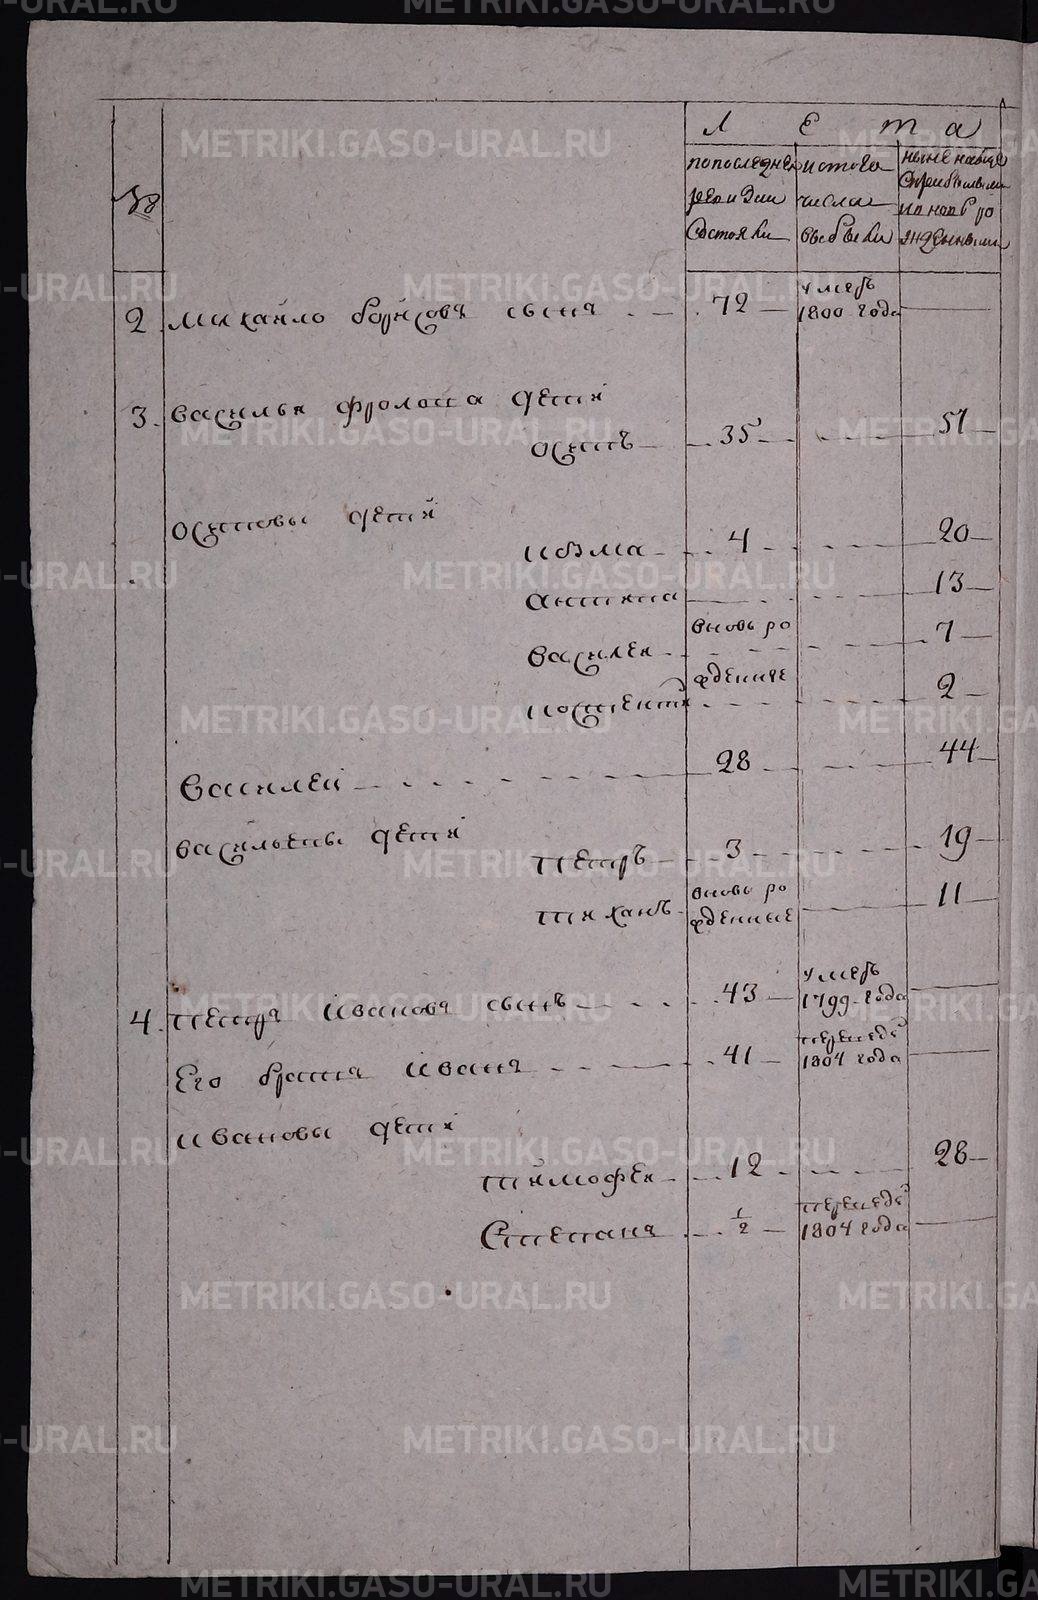 Л Е т а
№
попоследней ревизии состояли
ис того числа выбыли
ныне налице с прибылыми и вновь рожденными
2 михайло борисовъ сынъ 72 умеръ 1800 года
3. василья фролова дети
осипъ 35 51
осиповы дети
козма 4 20
антипа 13
василеи вновь ро 7
жденные 2
василеи 28 44
васильевы дети
петръ 3 19
тиханъ вновь рожденные 11
4. петръ ивановъ сынъ 43 умеръ 1799 года
Его братъ иванъ 41 переведе 1804 года
ивановы дети
тимофеи 12 28
Степанъ 1/2 переведе 1804 года
METRIKI.GASO-URAL.RU